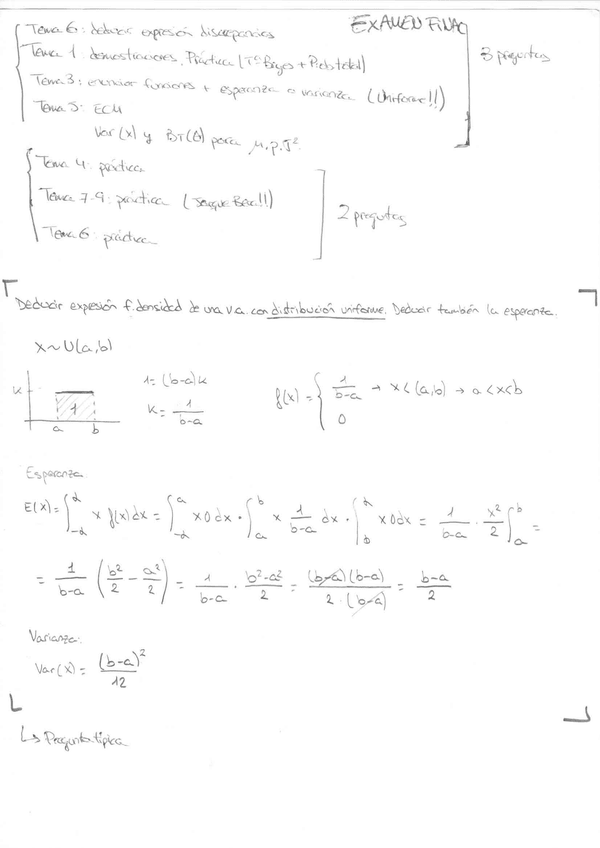 EXAMEN FINAL
Tema 6: deducir expresión discrepancias
Tema 1: demostraciones. Práctica (Tª Bayes + Prob total)
3 preguntas
Tema 3: enunciar funciones + esperanza o varianza (Uniforme!!)
Tema 5: ECM
Var(x) y BT(θ) para μ.p.σ².
Tema 4: práctica
Tema 7-9: práctica
2 preguntas
Tema 6: práctica
Deducir expresión f. densidad de una v.a. con distribución uniforme. Deducir también la esperanza.
X~U(a,b)
k 1 a b
1=(b-a)k
k= 1/(b-a)
f(x) = { 1/(b-a) → x<(a,b) → a<x<b
0
Esperanza
E(X)= ∫_{-α}^{α} x f(x)dx = ∫_{-α}^{a} x0dx · ∫_{a}^{b} x 1/(b-a) dx · ∫_{b}^{α} x0dx = 1/(b-a) · x²/2 ∫_{a}^{b} =
= 1/(b-a) (b²/2 - a²/2) = 1/(b-a) · (b²-a²)/2 = (b-a)(b-a)/(2·(b-a)) = (b-a)/2
Varianza:
Var(X)= (b-a)²/12
↳ Pregunta típica